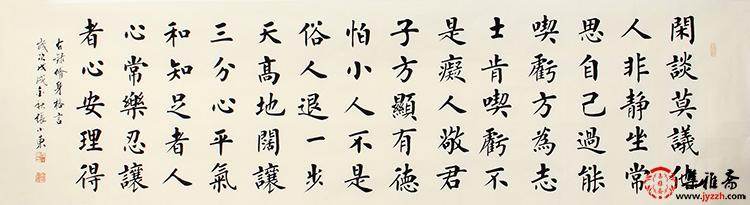 閑談莫議他
人非靜坐常
思自己過能
喫虧方為志
士肯喫虧不
是癡人敬君
子方顯有德
怕小人不是
俗人退一步
天高地闊讓
三分心平氣
和知足者人
心常樂忍讓
者心安理得
古語修身格言
歲次戊戌金秋張小東
集雅斋
www.jyzzh.com